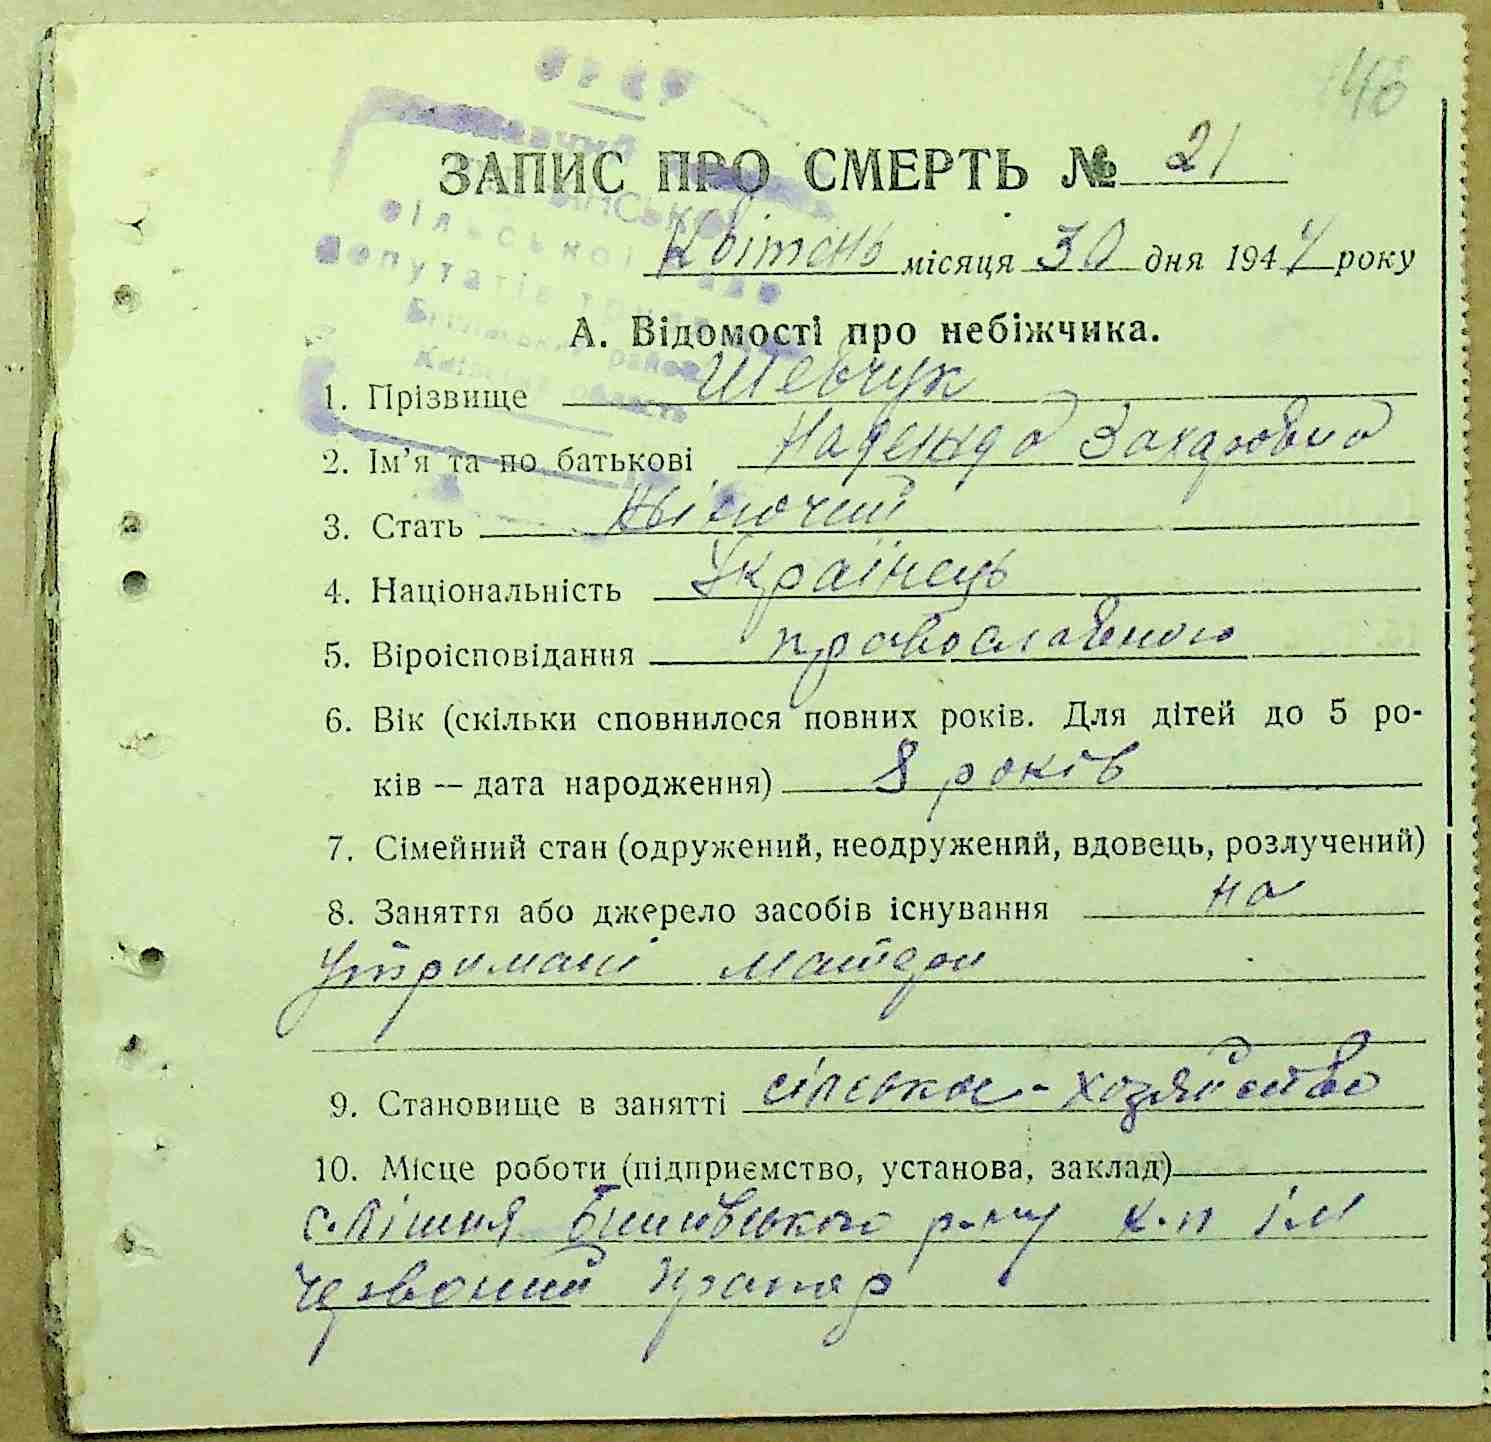 46
УРСР
ЗАПИС ПРО СМЕРТЬ № 21
сільської Ради
депутатів
Квітень місяця 30 дня 1944 року
А. Відомості про небіжчика.
район
Київська область
1. Прізвище Шевчук
2. Ім'я та по батькові Надежда Захаровна
3. Стать Жіночий
4. Національність Українець
5. Віроісповідання православною
6. Вік (скільки сповнилося повних років. Для дітей до 5 ро-
ків — дата народження) 8 років
7. Сімейний стан (одружений, неодружений, вдовець, розлучений)
8. Заняття або джерело засобів існування на
утримані матери
9. Становище в занятті сільське-хозяйство
10. Місце роботи (підприємство, установа, заклад)
с. Лішня Бишівського р-ну к-п ім
Червоний Прапор